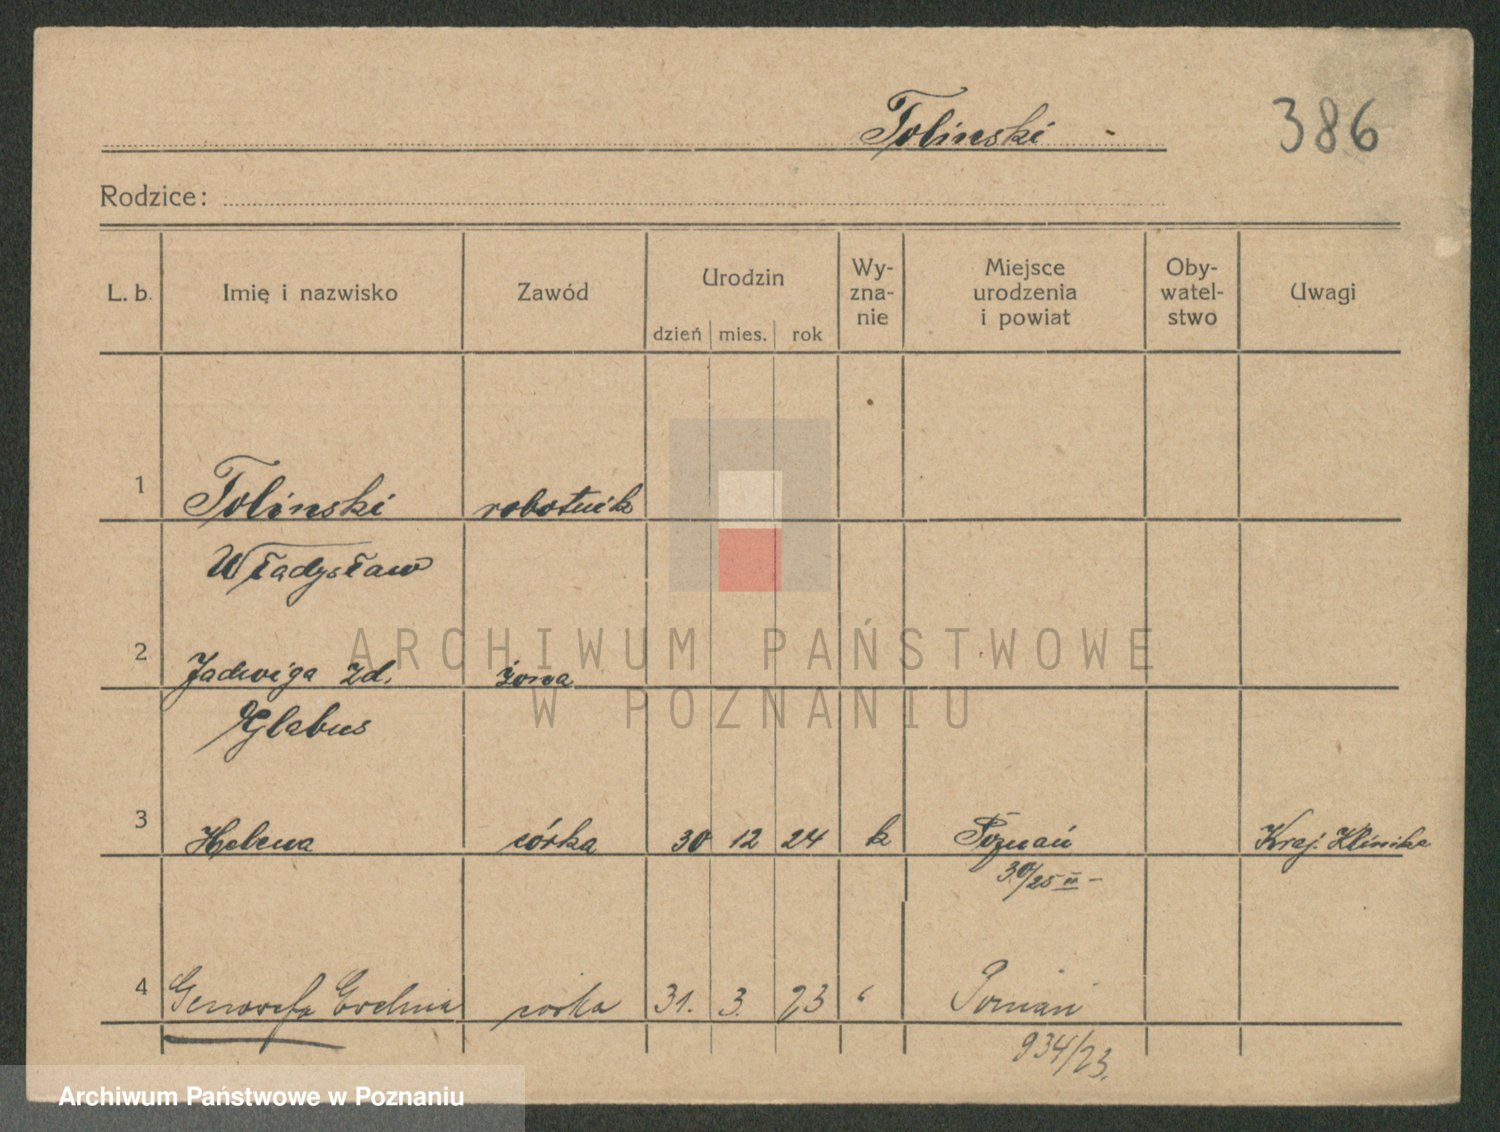 Tolinski 386
Rodzice:
L. b. Imię i nazwisko Zawód Urodzin dzień mies. rok Wy- zna- nie Miejsce urodzenia i powiat Oby- watel- stwo Uwagi
1 Tolinski robotnik
Władysław
2 Jadwiga zd. żona
ARCHIWUM PAŃSTWOWE
W POZNANIU
Glabus
3 Helena córka 30 12 24 k Poznań Kraj. Klinika
30/25 II
4 Genowefa Ewelina córka 31. 3. 23 " Poznań
934/23.
Archiwum Państwowe w Poznaniu